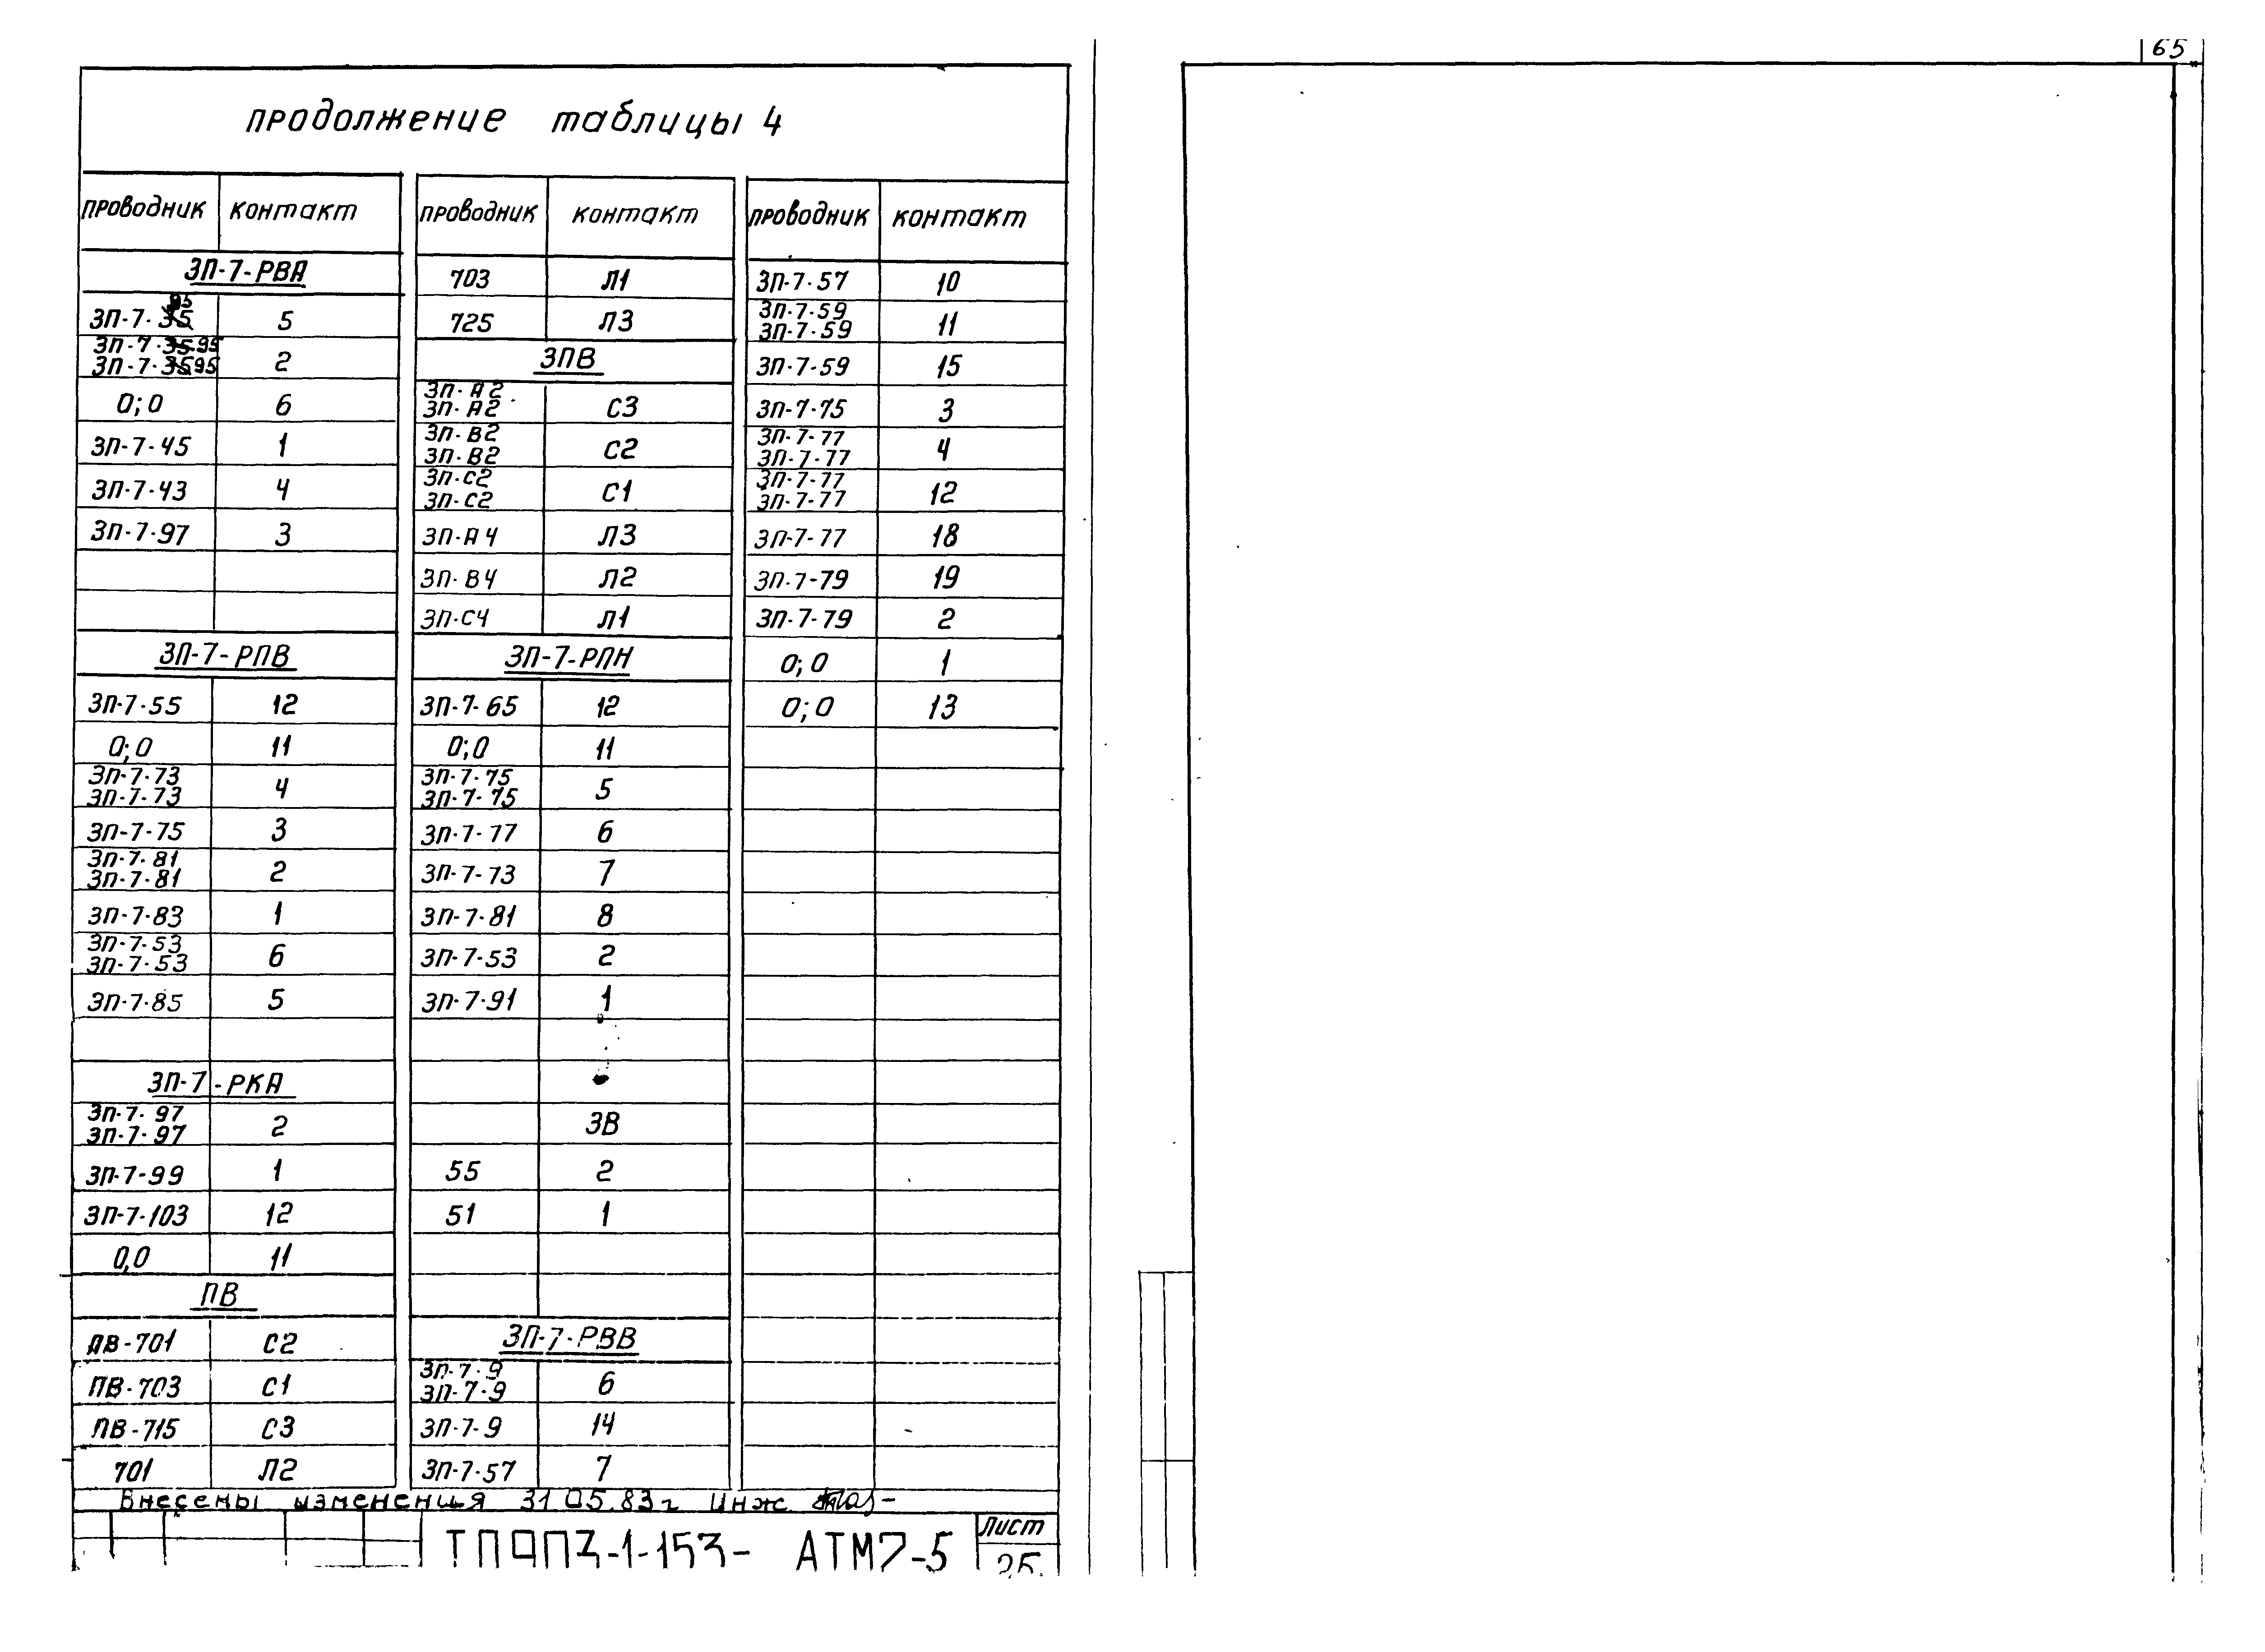 65
продолжение таблицы 4
проводник контакт
ЗП-7-РВА
95
ЗП-7-35 5
ЗП-7-35 95
ЗП-7-35 95 2
0;0 6
ЗП-7-45 1
ЗП-7-43 4
ЗП-7-97 3
ЗП-7-РПВ
ЗП-7-55 12
0;0 11
ЗП-7-73
ЗП-7-73 4
ЗП-7-75 3
ЗП-7-81
ЗП-7-81 2
ЗП-7-83 1
ЗП-7-53
ЗП-7-53 6
ЗП-7-85 5
ЗП-7-РКА
ЗП-7-97
ЗП-7-97 2
ЗП-7-99 1
ЗП-7-103 12
0,0 11
ПВ
ПВ-701 С2
ПВ-703 С1
ПВ-715 С3
701 Л2
проводник контакт
703 Л1
725 Л3
ЗПВ
ЗП-А2
ЗП-А2 С3
ЗП-В2
ЗП-В2 С2
ЗП-С2
ЗП-С2 С1
ЗП-А4 Л3
ЗП-В4 Л2
ЗП-С4 Л1
ЗП-7-РПН
ЗП-7-65 12
0;0 11
ЗП-7-75
ЗП-7-75 5
ЗП-7-77 6
ЗП-7-73 7
ЗП-7-81 8
ЗП-7-53 2
ЗП-7-91 1
ЗВ
55 2
51 1
ЗП-7-РВВ
ЗП-7-9
ЗП-7-9 6
ЗП-7-9 14
ЗП-7-57 7
проводник контакт
ЗП-7-57 10
ЗП-7-59
ЗП-7-59 11
ЗП-7-59 15
ЗП-7-75 3
ЗП-7-77
ЗП-7-77 4
ЗП-7-77
ЗП-7-77 12
ЗП-7-77 18
ЗП-7-79 19
ЗП-7-79 2
0;0 1
0;0 13
Внесены изменения 31 05.83г Инж
-1-153- АТМ2-5
Лист